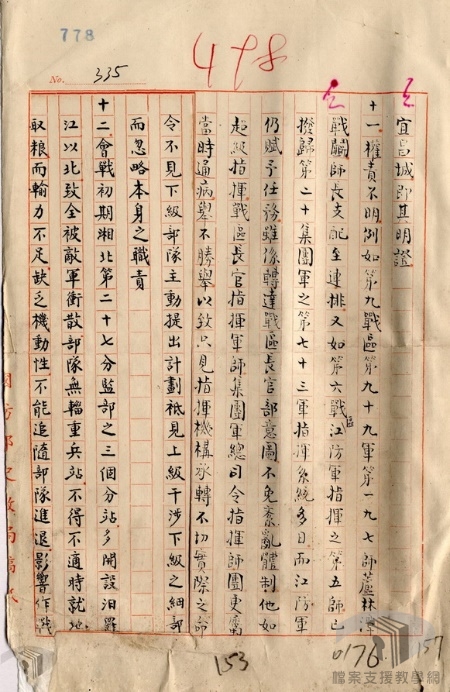 778
498
No. 335
宜昌城即其明證
十一權責不明例如第九戰區第九十九軍第一九七師蘆林潭
戰鬭師長支配至連排又如第六戰區江防軍指揮之第五師已
撥歸第二十集團軍之第七十三軍指揮系統多日而江防軍
仍賦予任務雖係轉達戰區長官部意圖不免紊亂體制他如
越級指揮戰區長官指揮軍師集團軍總司令指揮師團更屬
當時通病舉不勝舉以致只見指揮機構承轉不切實際之命
令不見下級部隊主動提出計劃祇見上級干涉下級之細部
而忽略本身之職責
十二會戰初期湘北第二十七分監部之三個分站多開設汨羅
江以北致全被敵軍衝散部隊無輜重兵站不得不適時就地
取粮而輸力不足缺乏機動性不能追隨部隊進退影響作戰
國防部史政局稿紙
153
0176
157
檔案支援教學網